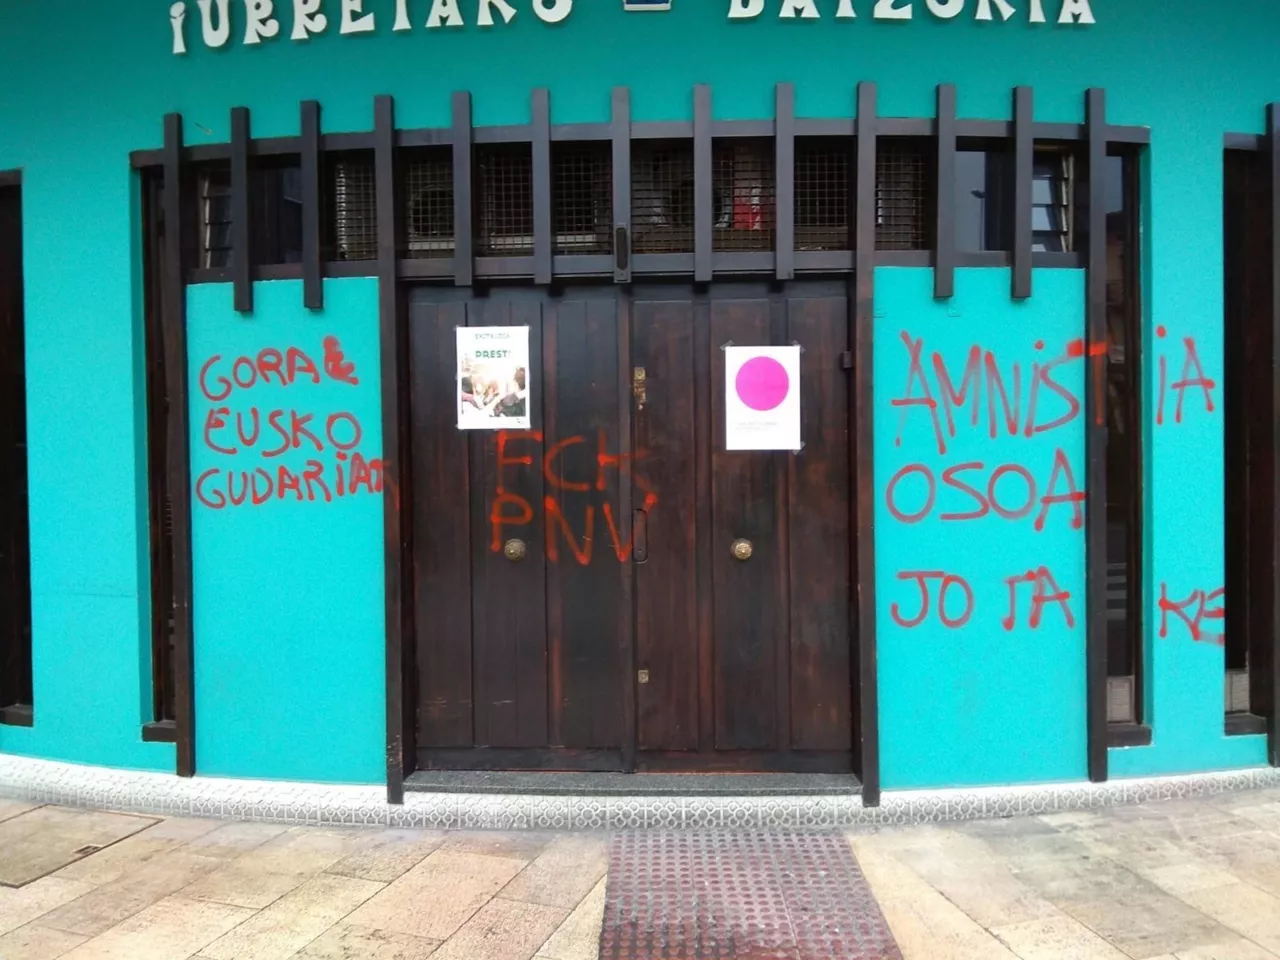 IURRETAKO BATZOKIA
PREST!
GORA
EUSKO
GUDARIAK
FCK
PNV
AMNiSTiA
OSOA
JO TA KE